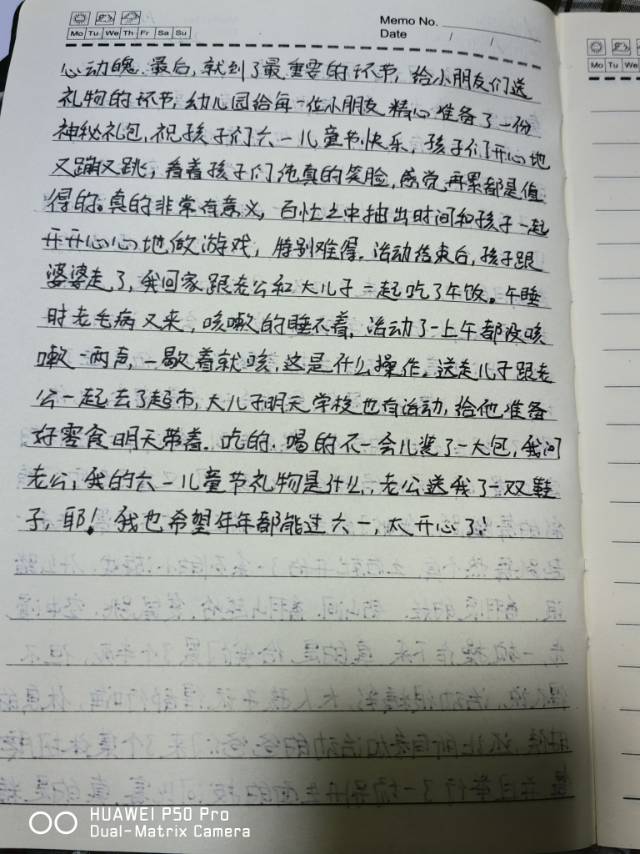 Memo No.
Date / /
Mo Tu We Th Fr Sa Su
Mo Tu We
心动魄。最后，就到了最重要的环节，给小朋友们送
礼物的环节，幼儿园给每一位小朋友精心准备了一份
神秘礼包，祝孩子们六一儿童节快乐，孩子们开心地
又蹦又跳，看着孩子们纯真的笑脸，感觉再累都是值
得的。真的非常有意义，百忙之中抽出时间和孩子一起
开开心心地做游戏，特别难得。活动结束后，孩子跟
婆婆走了，我回家跟老公和大儿子一起吃了午饭。午睡
时老毛病又来，咳嗽的睡不着，活动了一上午都没咳
嗽一两声，一歇着就咳，这是什么操作。送走儿子跟老
公一起去了超市，大儿子明天学校也有活动，给他准备
好零食明天带着。吃的、喝的不一会儿装了一大包，我问
老公，我的六一儿童节礼物是什么，老公送我了一双鞋
子，耶！我也希望年年都能过六一，太开心了！
HUAWEI P50 Pro
Dual-Matrix Camera